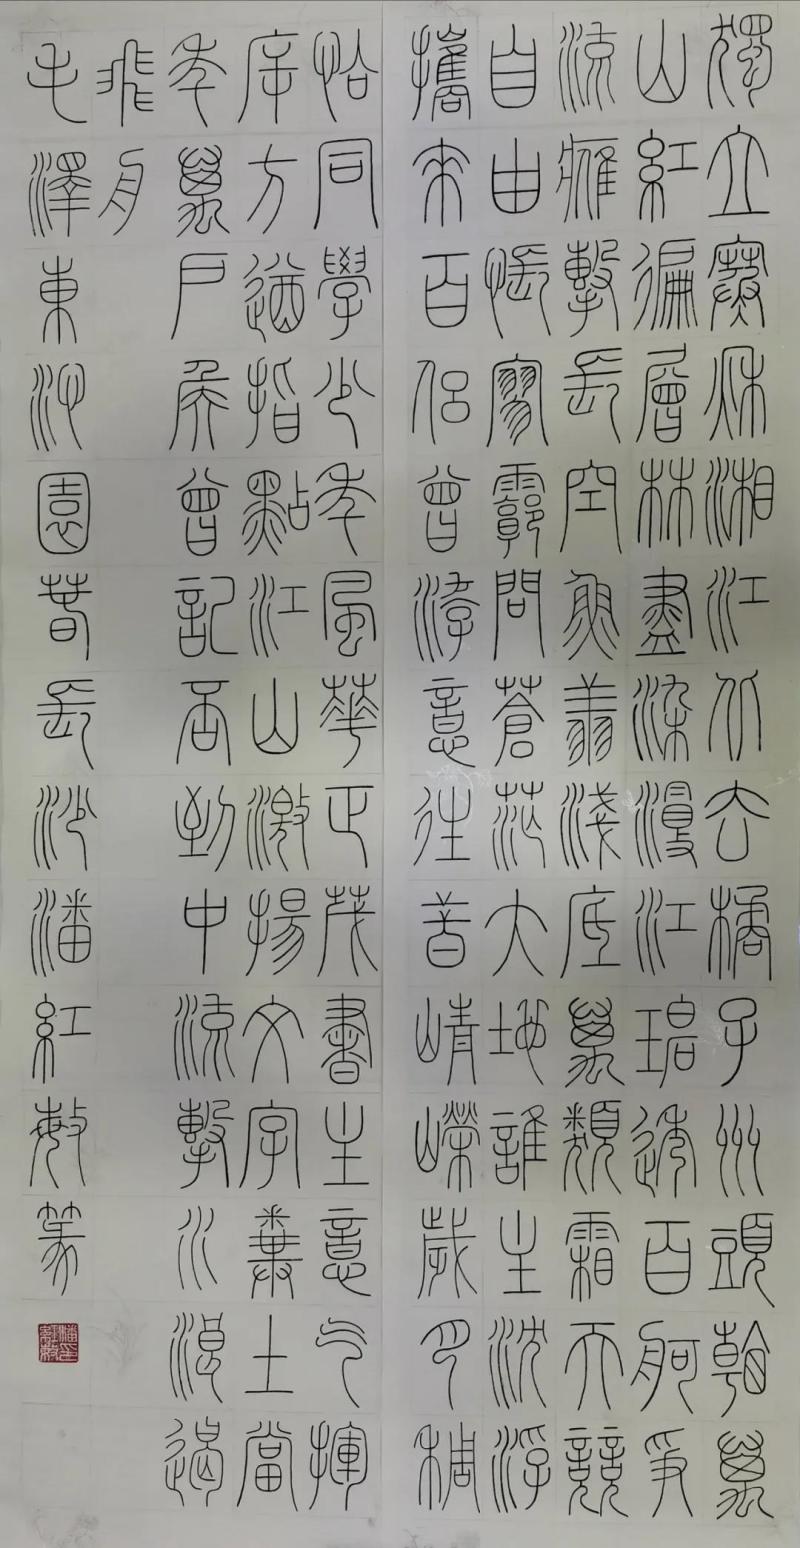 獨立寒秋湘江北去橘子州頭看萬
山紅徧層林盡染漫江碧透百舸爭
流鷹擊長空魚翔淺底萬類霜天競
自由悵寥霩問蒼茫大地誰主沈浮
攜來百侶曾游意往昔崢嶸歲月稠
恰同學少年風華正茂書生意气揮
斥方遒指點江山激揚文字糞土當
年萬戶侯曾記否到中流擊水浪遏
飛舟
毛澤東沁園春長沙潘紅敏篆